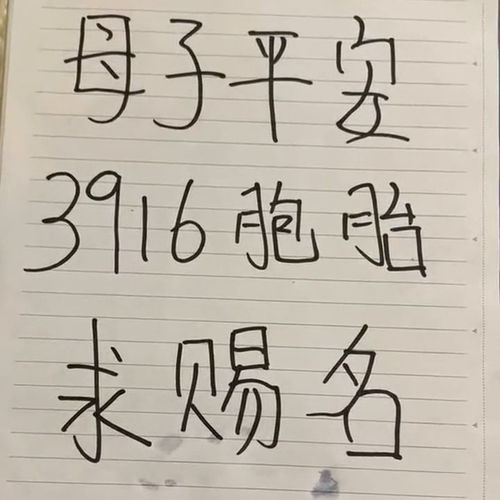 母子平安
3916胞胎
求赐名